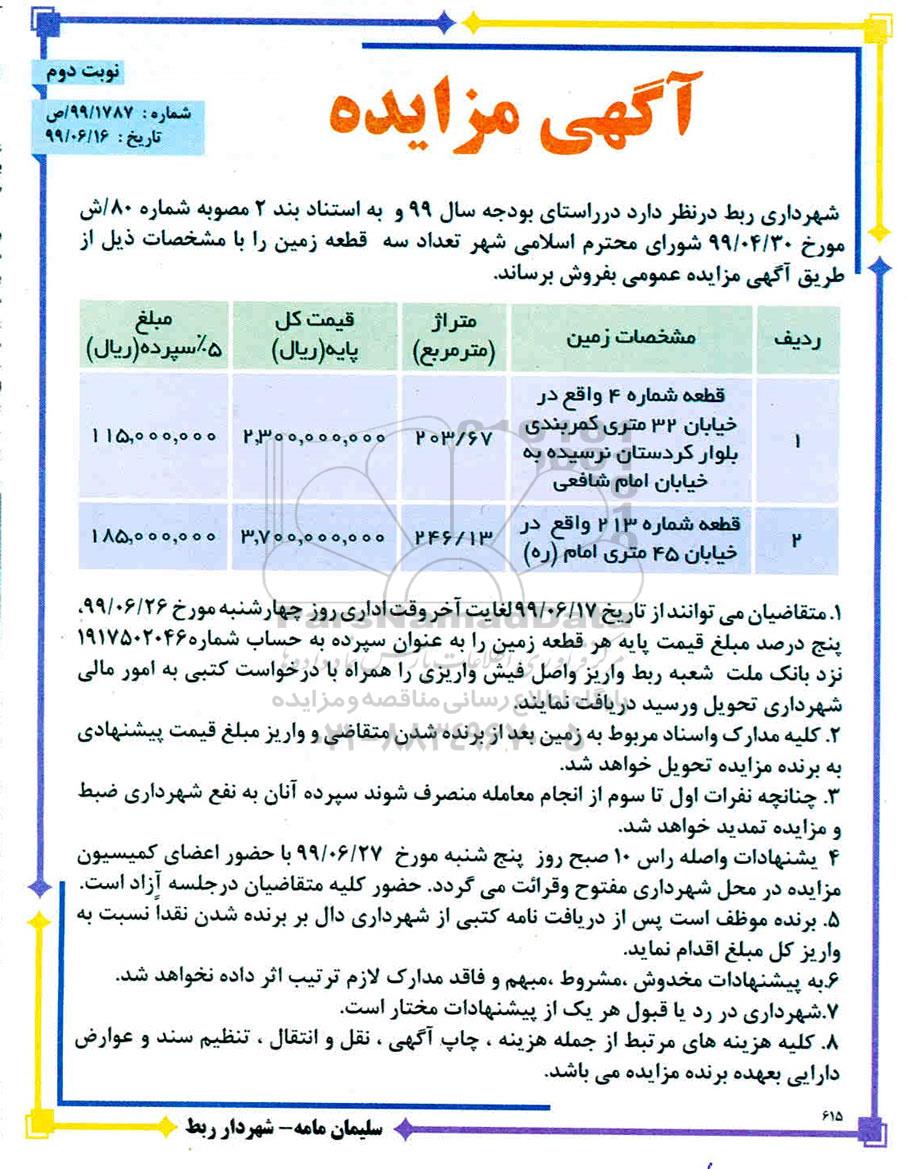 نوبت دوم
شماره : ۹۹/۱۷۸۷/ص
تاریخ : ۹۹/۰۶/۱۶
آگهی مزایده
شهرداری ربط درنظر دارد درراستای بودجه سال ۹۹ و به استناد بند ۲ مصوبه شماره ۸۰/ش
مورخ ۹۹/۰۴/۳۰ شورای محترم اسلامی شهر تعداد سه قطعه زمین را با مشخصات ذیل از
طریق آگهی مزایده عمومی بفروش برساند.
ردیف مشخصات زمین متراژ (مترمربع) قیمت کل پایه(ریال) مبلغ ۵٪سپرده(ریال)
۱ قطعه شماره ۴ واقع در
خیابان ۳۲ متری کمربندی
بلوار کردستان نرسیده به
خیابان امام شافعی
۲۰۳/۶۷ ۲,۳۰۰,۰۰۰,۰۰۰ ۱۱۵,۰۰۰,۰۰۰
۲ قطعه شماره ۲۱۳ واقع در
خیابان ۴۵ متری امام (ره)
۲۴۶/۱۳ ۳,۷۰۰,۰۰۰,۰۰۰ ۱۸۵,۰۰۰,۰۰۰
۱. متقاضیان می توانند از تاریخ ۹۹/۰۶/۱۷لغایت آخر وقت اداری روز چهارشنبه مورخ ۹۹/۰۶/۲۶،
پنج درصد مبلغ قیمت پایه هر قطعه زمین را به عنوان سپرده به حساب شماره۱۹۱۷۵۰۲۰۴۶
نزد بانک ملت شعبه ربط واریز واصل فیش واریزی را همراه با درخواست کتبی به امور مالی
شهرداری تحویل ورسید دریافت نمایند.
۲. کلیه مدارک واسناد مربوط به زمین بعد از برنده شدن متقاضی و واریز مبلغ قیمت پیشنهادی
به برنده مزایده تحویل خواهد شد.
۳. چنانچه نفرات اول تا سوم از انجام معامله منصرف شوند سپرده آنان به نفع شهرداری ضبط
و مزایده تمدید خواهد شد.
۴ یشنهادات واصله راس ۱۰ صبح روز پنج شنبه مورخ ۹۹/۰۶/۲۷ با حضور اعضای کمیسیون
مزایده در محل شهرداری مفتوح وقرائت می گردد. حضور کلیه متقاضیان درجلسه آزاد است.
۵. برنده موظف است پس از دریافت نامه کتبی از شهرداری دال بر برنده شدن نقداً نسبت به
واریز کل مبلغ اقدام نماید.
۶.به پیشنهادات مخدوش ،مشروط ،مبهم و فاقد مدارک لازم ترتیب اثر داده نخواهد شد.
۷.شهرداری در رد یا قبول هر یک از پیشنهادات مختار است.
۸. کلیه هزینه های مرتبط از جمله هزینه ، چاپ آگهی ، نقل و انتقال ، تنظیم سند و عوارض
دارایی بعهده برنده مزایده می باشد.
۶۱۵
سلیمان مامه– شهردار ربط
ParsNamadData
پایگاه اطلاع رسانی مناقصه و مزایده
۰۲۱-۸۸۳۴۹۶۷۰-۵